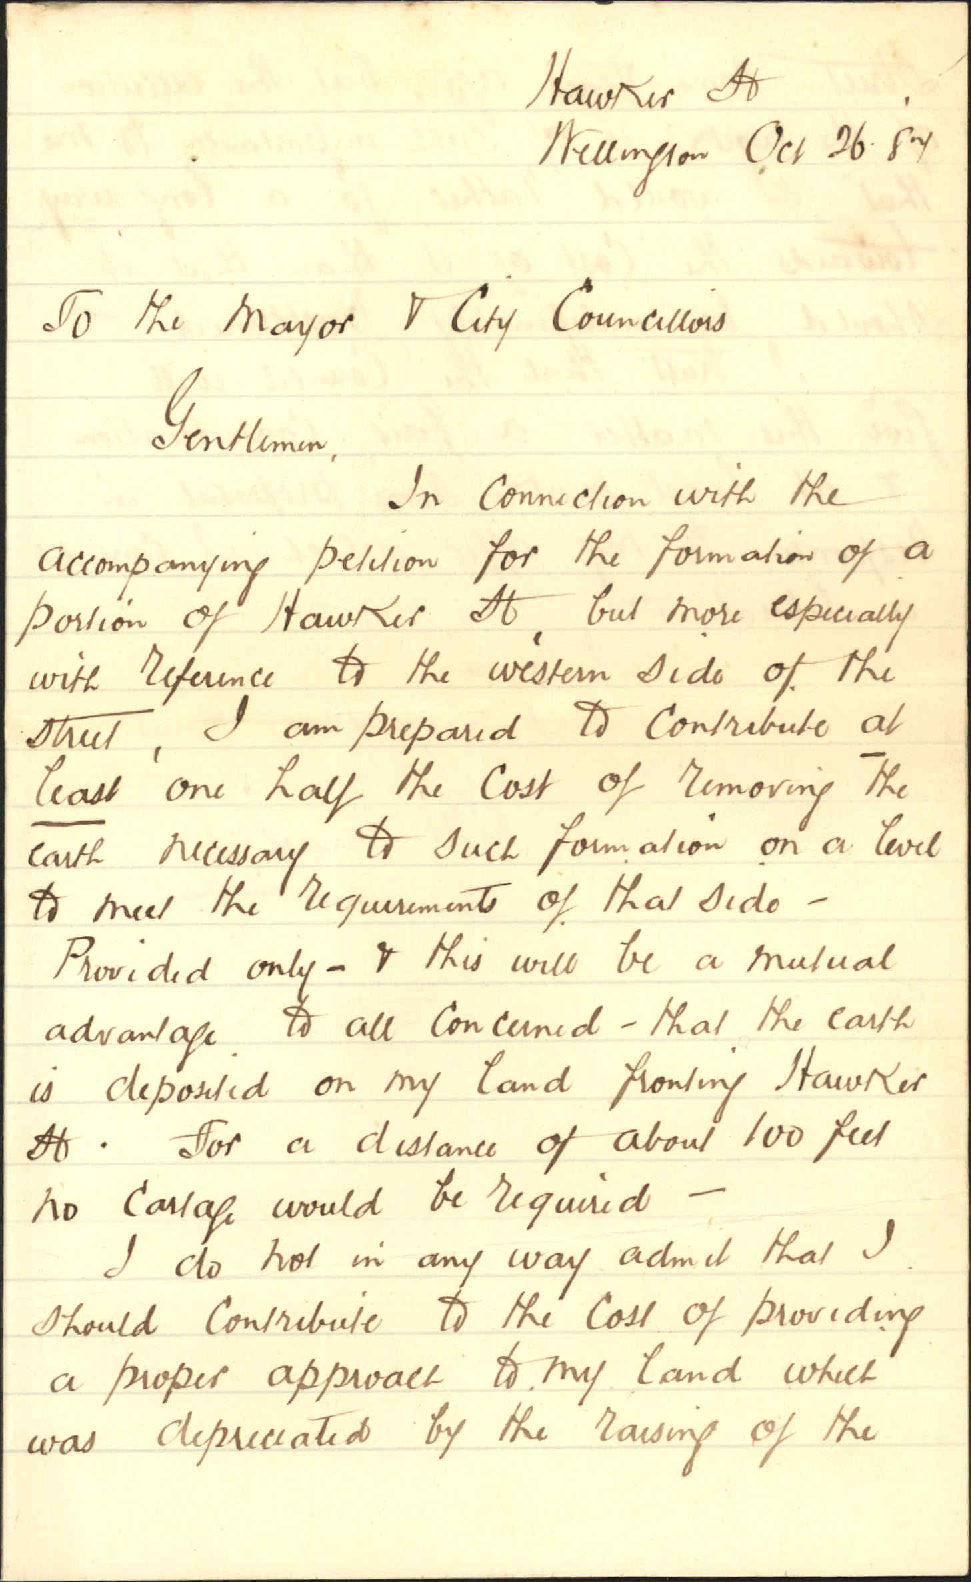 Hawker St
Wellington Oct 26. 84
To the Mayor & City Councillors
Gentlemen,
In connection with the
accompanying petition for the formation of a
portion of Hawker St, but more especially
with reference to the western side of the
street, I am prepared to contribute at
least one half the cost of removing the
earth necessary to such formation on a level
to meet the requirements of that side -
Provided only - & this will be a mutual
advantage to all concerned - that the earth
is deposited on my land fronting Hawker
St. For a distance of about 100 feet
no cartage would be required -
I do not in any way admit that I
should contribute to the cost of providing
a proper approach to my land which
was depreciated by the raising of the